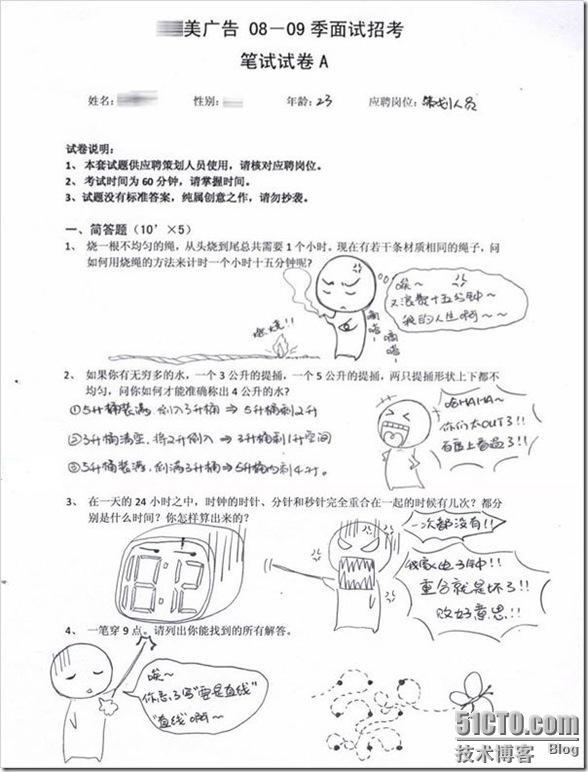 美广告 08－09 季面试招考
笔试试卷 A
姓名： 性别： 年龄：23 应聘岗位：策划人员
试卷说明：
1、 本套试题供应聘策划人员使用，请核对应聘岗位。
2、 考试时间为 60 分钟，请掌握时间。
3、 试题没有标准答案，纯属创意之作，请勿抄袭。
一、简答题（10’×5）
1、 烧一根不均匀的绳，从头烧到尾总共需要 1 个小时。现在有若干条材质相同的绳子，问
如何用烧绳的方法来计时一个小时十五分钟呢？
唉～
又浪费十五分钟～
我的人生啊～～
燃烧!!
嘀嗒~
嘀嗒~
2、 如果你有无穷多的水，一个 3 公升的提捅，一个 5 公升的提捅，两只提捅形状上下都不
均匀，问你如何才能准确称出 4 公升的水？
①5升桶装满，倒入3升桶⇒5升桶剩2升
②3升桶清空，将2升倒入⇒3升桶剩1升空间
③5升桶装满，倒满3升桶⇒5升桶内剩4升。
哈HAHA~
你们太OUT了!!
百度上看过了!!
3、 在一天的 24 小时之中，时钟的时针、分针和秒针完全重合在一起的时候有几次？都分
别是什么时间？你怎样算出来的？
一次都没有!!
我家电子钟!!
重合就是坏了!!
败好意思!!
4、 一笔穿 9 点。请列出你能找到的所有解答。
唉~
你忘了写"要是直线"
"直线"啊~
51CTO.com
技术博客 Blog